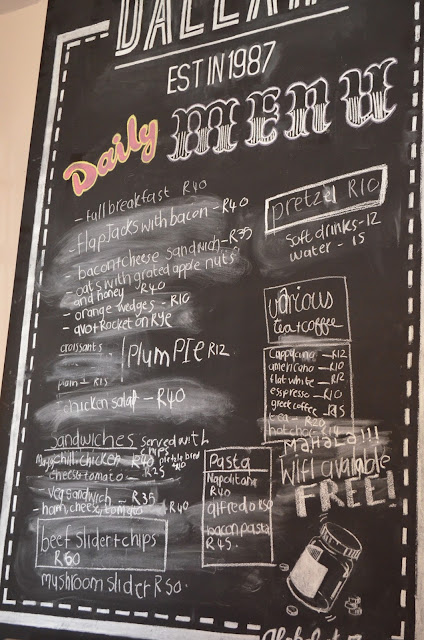 EST IN 1987
Daily MENU
- full breakfast R40
- flapJacks with bacon - R40
- bacon+cheese sandwich - R35
- oats with grated apple nuts
and honey R40
- orange wedges - R10
- avo+Rocket on Rye
croissants
PLUM PIE R12
plain - R15
chicken salad - R40
pretzel R10
Soft drinks - 12
water - 15
various
tea+coffee
cappucino - R12
americano - R10
flat white - R12
esspresso - R10
greek coffee - R15
tea R20
hot choc
MAHALA!!!
WIFI available
FREE!
Sandwiches served with
chips
chilli chicken R40
cheese tomato - R25
veg sandwich - R35
- ham, cheese, tomatoe R40
beef slider+chips
R60
mushroom slider R50.
Pasta
Napolitana
R40
alfredo R50
bacon pasta
R45.